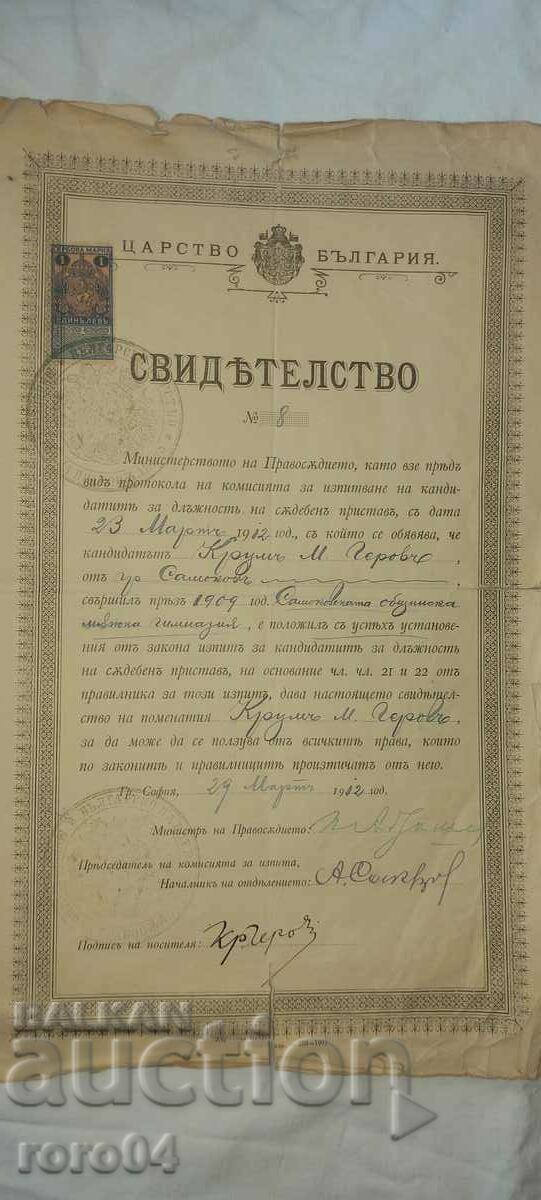 ЦАРСТВО БЪЛГАРИЯ.
ГЕРБОВА МАРКА
1 1
ЕДИНЪ ЛЕВЪ
СВИДѢТЕЛСТВО
№ 8
Министерството на Правосѫдието, като взе прѣдъ
видъ протокола на комисията за изпитване на канди-
датитѣ за длъжность на сѫдебенъ приставъ, съ дата
23 Мартъ 1912 год., съ който се обявява, че
кандидатътъ Крумъ М. Геровъ,
отъ гр. Самоковъ,
свършилъ прѣзъ 1909 год. Самоковската общинска
мѫжка гимназия, е положилъ съ успѣхъ установе-
ния отъ закона изпитъ за кандидатитѣ за длъжность
на сѫдебенъ приставъ, на основание чл. чл. 21 и 22 отъ
правилника за този изпитъ, дава настоящето свидѣтел-
ство на поменатия Крумъ М. Геровъ,
за да може да се ползува отъ всичкитѣ права, които
по законитѣ и правилницитѣ произтичатъ отъ него.
Гр. София, 29 Мартъ 1912 год.
Министръ на Правосѫдието:
Прѣдседатель на комисията за изпита,
Началникъ на отдѣлението:
Подпись на носителя: КрГеровъ
BALKAN
auction
roro04